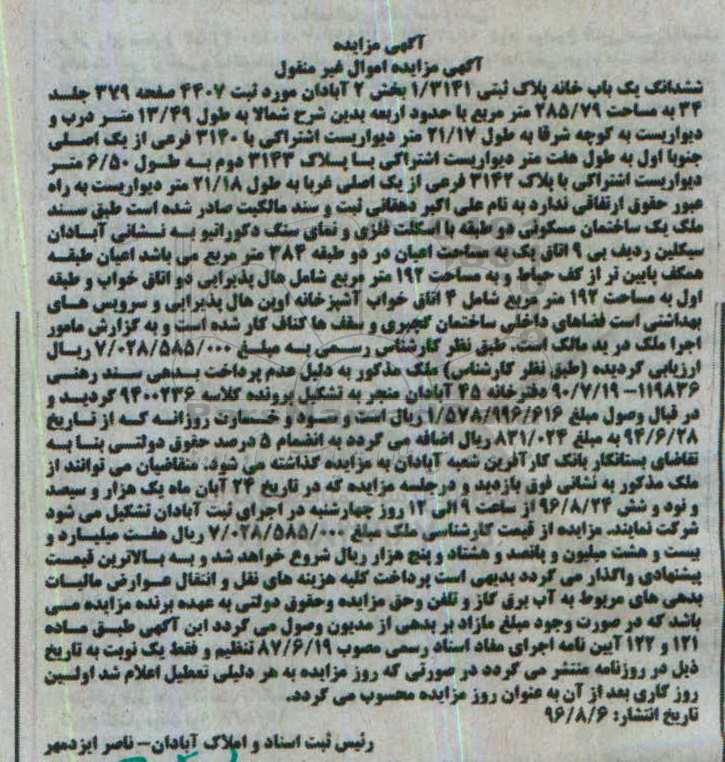 آگهی مزایده
آگهی مزایده اموال غیر منقول
ششدانگ یک باب خانه پلاک ثبتی ۱/۳۱۴۱ بخش ۲ آبادان مورد ثبت ۴۴۰۷ صفحه ۳۷۹ جلد
۳۴ به مساحت ۲۸۵/۷۹ متر مربع با حدود اربعه بدین شرح شمالا به طول ۱۳/۴۹ متر درب و
دیواریست به کوچه شرقا به طول ۲۱/۱۷ متر دیواریست اشتراکی با ۳۱۴۰ فرعی از یک اصلی
جنوبا اول به طول هفت متر دیواریست اشتراکی با پلاک ۳۱۴۳ دوم به طول ۶/۵۰ متر
دیواریست اشتراکی با پلاک ۳۱۴۲ فرعی از یک اصلی غربا به طول ۲۱/۱۸ متر دیواریست به راه
عبور حقوق ارتفاقی ندارد به نام علی اکبر دهقانی ثبت و سند مالکیت صادر شده است طبق سند
ملک یک ساختمان مسکونی دو طبقه با اسکلت فلزی و نمای سنگ دکوراتیو به نشانی آبادان
سیکلین ردیف بی ۹ اتاق یک به مساحت اعیان در دو طبقه ۳۸۴ متر مربع می باشد اعیان طبقه
همکف پایین تر از کف حیاط و به مساحت ۱۹۲ متر مربع شامل هال پذیرایی دو اتاق خواب و طبقه
اول به مساحت ۱۹۲ متر مربع شامل ۴ اتاق خواب آشپزخانه اوپن هال پذیرایی و سرویس های
بهداشتی است فضاهای داخلی ساختمان گچبری و سقف ها کناف کار شده است و به گزارش مامور
اجرا ملک در ید مالک است. طبق نظر کارشناس رسمی به مبلغ ۷/۰۲۸/۵۸۵/۰۰۰ ریال
ارزیابی گردیده (طبق نظر کارشناس) ملک مذکور به دلیل عدم پرداخت بدهی سند رهنی
۱۱۹۸۳۶- ۹۰/۷/۱۹ دفترخانه ۴۵ آبادان منجر به تشکیل پرونده کلاسه ۹۴۰۰۲۳۶ گردید و
در قبال وصول مبلغ ۱/۵۷۸/۹۹۶/۶۱۶ ریال است و سود و خسارت روزانه که از تاریخ
۹۴/۶/۲۸ به مبلغ ۸۳۱/۰۲۴ ریال اضافه می گردد به انضمام ۵ درصد حقوق دولتی بنا به
تقاضای بستانکار بانک کارآفرین شعبه آبادان به مزایده گذاشته می شود. متقاضیان می توانند از
ملک مذکور به نشانی فوق بازدید و درجلسه مزایده که در تاریخ ۲۴ آبان ماه یک هزار و سیصد
و نود و شش ۹۶/۸/۲۴ از ساعت ۹ الی ۱۲ روز چهارشنبه در اجرای ثبت آبادان تشکیل می شود
شرکت نمایند. مزایده از قیمت کارشناسی ملک مبلغ ۷/۰۲۸/۵۸۵/۰۰۰ ریال هفت میلیارد و
بیست و هشت میلیون و پانصد و هشتاد و پنج هزار ریال شروع خواهد شد و به بالاترین قیمت
پیشنهادی واگذار می گردد بدیهی است پرداخت کلیه هزینه های نقل و انتقال عوارض مالیات
بدهی های مربوط به آب برق گاز و تلفن وحق مزایده وحقوق دولتی به عهده برنده مزایده می
باشد که در صورت وجود مبلغ مازاد بر بدهی از مدیون وصول می گردد این آگهی طبق ماده
۱۲۱ و ۱۲۲ آیین نامه اجرای مفاد اسناد رسمی مصوب ۸۷/۶/۱۹ تنظیم و فقط یک نوبت به تاریخ
ذیل در روزنامه منتشر می گردد در صورتی که روز مزایده به هر دلیلی تعطیل اعلام شد اولین
روز کاری بعد از آن به عنوان روز مزایده محسوب می گردد.
تاریخ انتشار: ۹۶/۸/۶
رئیس ثبت اسناد و املاک آبادان- ناصر ایزدمهر